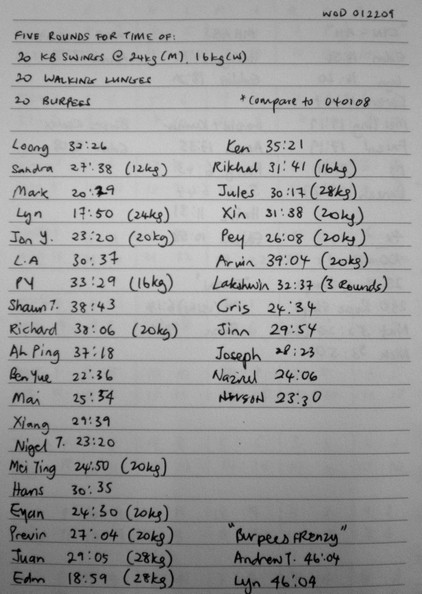 WOD 012209
FIVE ROUNDS FOR TIME OF:
20 KB SWINGS @ 24kg (M), 16kg (W)
20 WALKING LUNGES
20 BURPEES
*Compare to 040108
Loong 32:26
Sandra 27:38 (12kg)
Mark 20:29
Lyn 17:50 (24kg)
Jon Y. 23:20 (20kg)
L.A 30:37
PY 33:29 (16kg)
Shaun T. 38:43
Richard 38:06 (20kg)
Ah Ping 37:18
Ben Yue 22:36
Mai 25:54
Xiang 29:39
Nigel T. 23:20
Mei Ting 24:50 (20kg)
Hans 30:35
Eyan 24:30 (20kg)
Previn 27:04 (20kg)
Juan 29:05 (28kg)
Edm 18:59 (28kg)
Ken 35:21
Rikhal 31:41 (16kg)
Jules 30:17 (28kg)
Xin 31:38 (20kg)
Pey 26:08 (20kg)
Arvin 39:04 (20kg)
Lakshwin 32:37 (3 Rounds)
Cris 24:34
Jinn 29:54
Joseph 28:23
Nazirul 24:06
NELSON 23:30
"Burpees FRENZY"
Andrew T. 46:04
Lyn 46:04